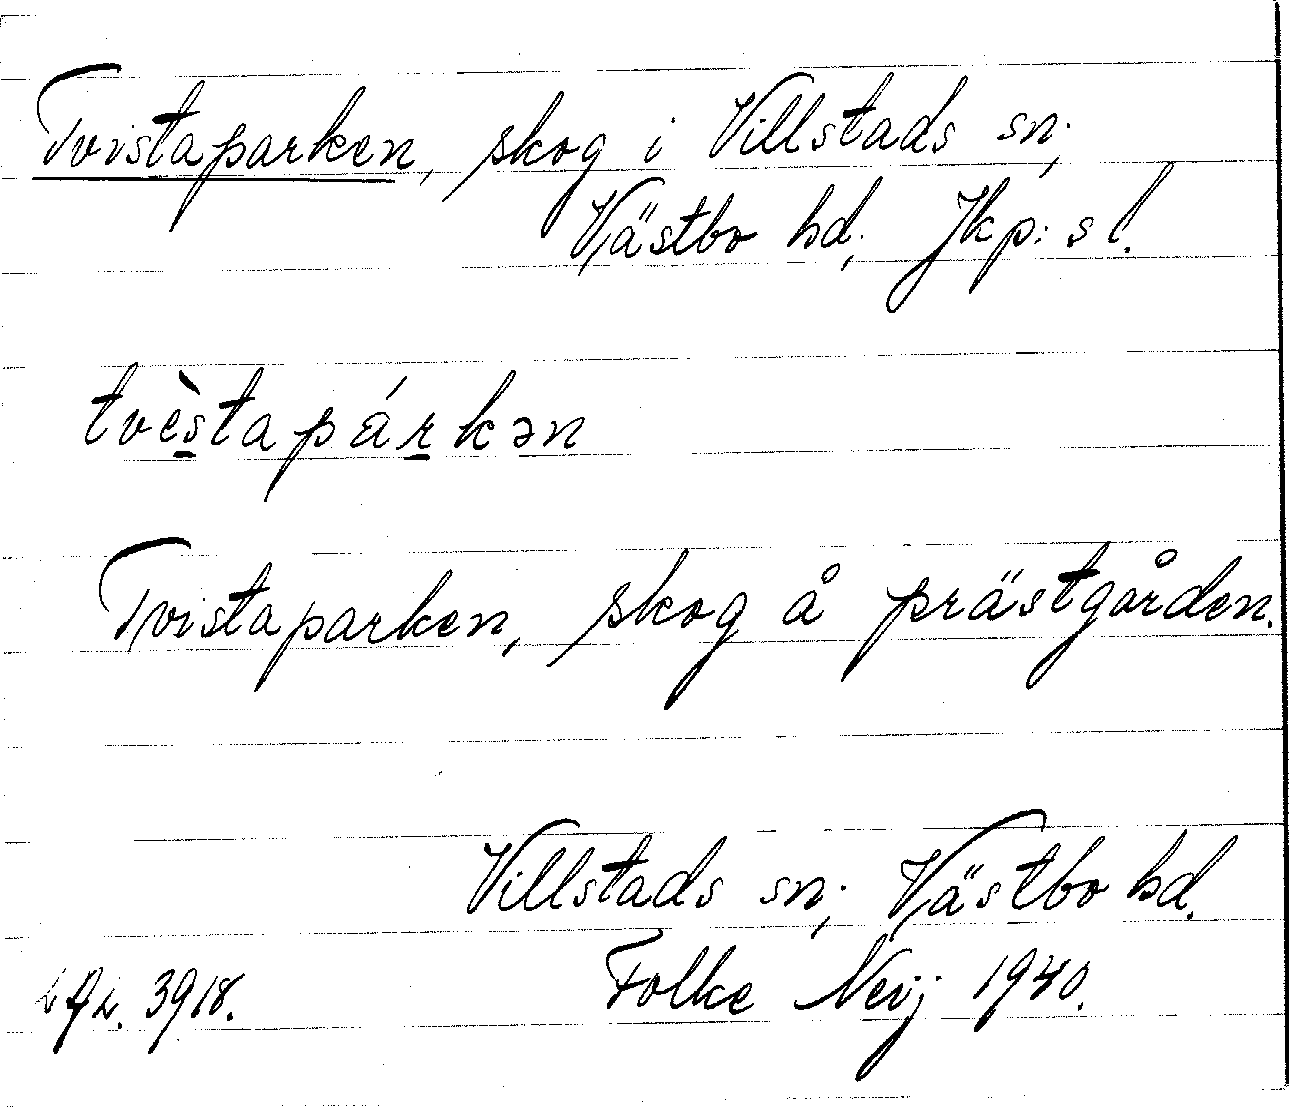 Tvistaparken, skog i Villstads sn.,
Västbo hd., Jkp:s l.
tvès̱tapáṟkən
Tvistaparken, skog å prästgården.
Villstads sn., Västbo hd.
Folke Neij 1940.
3918.